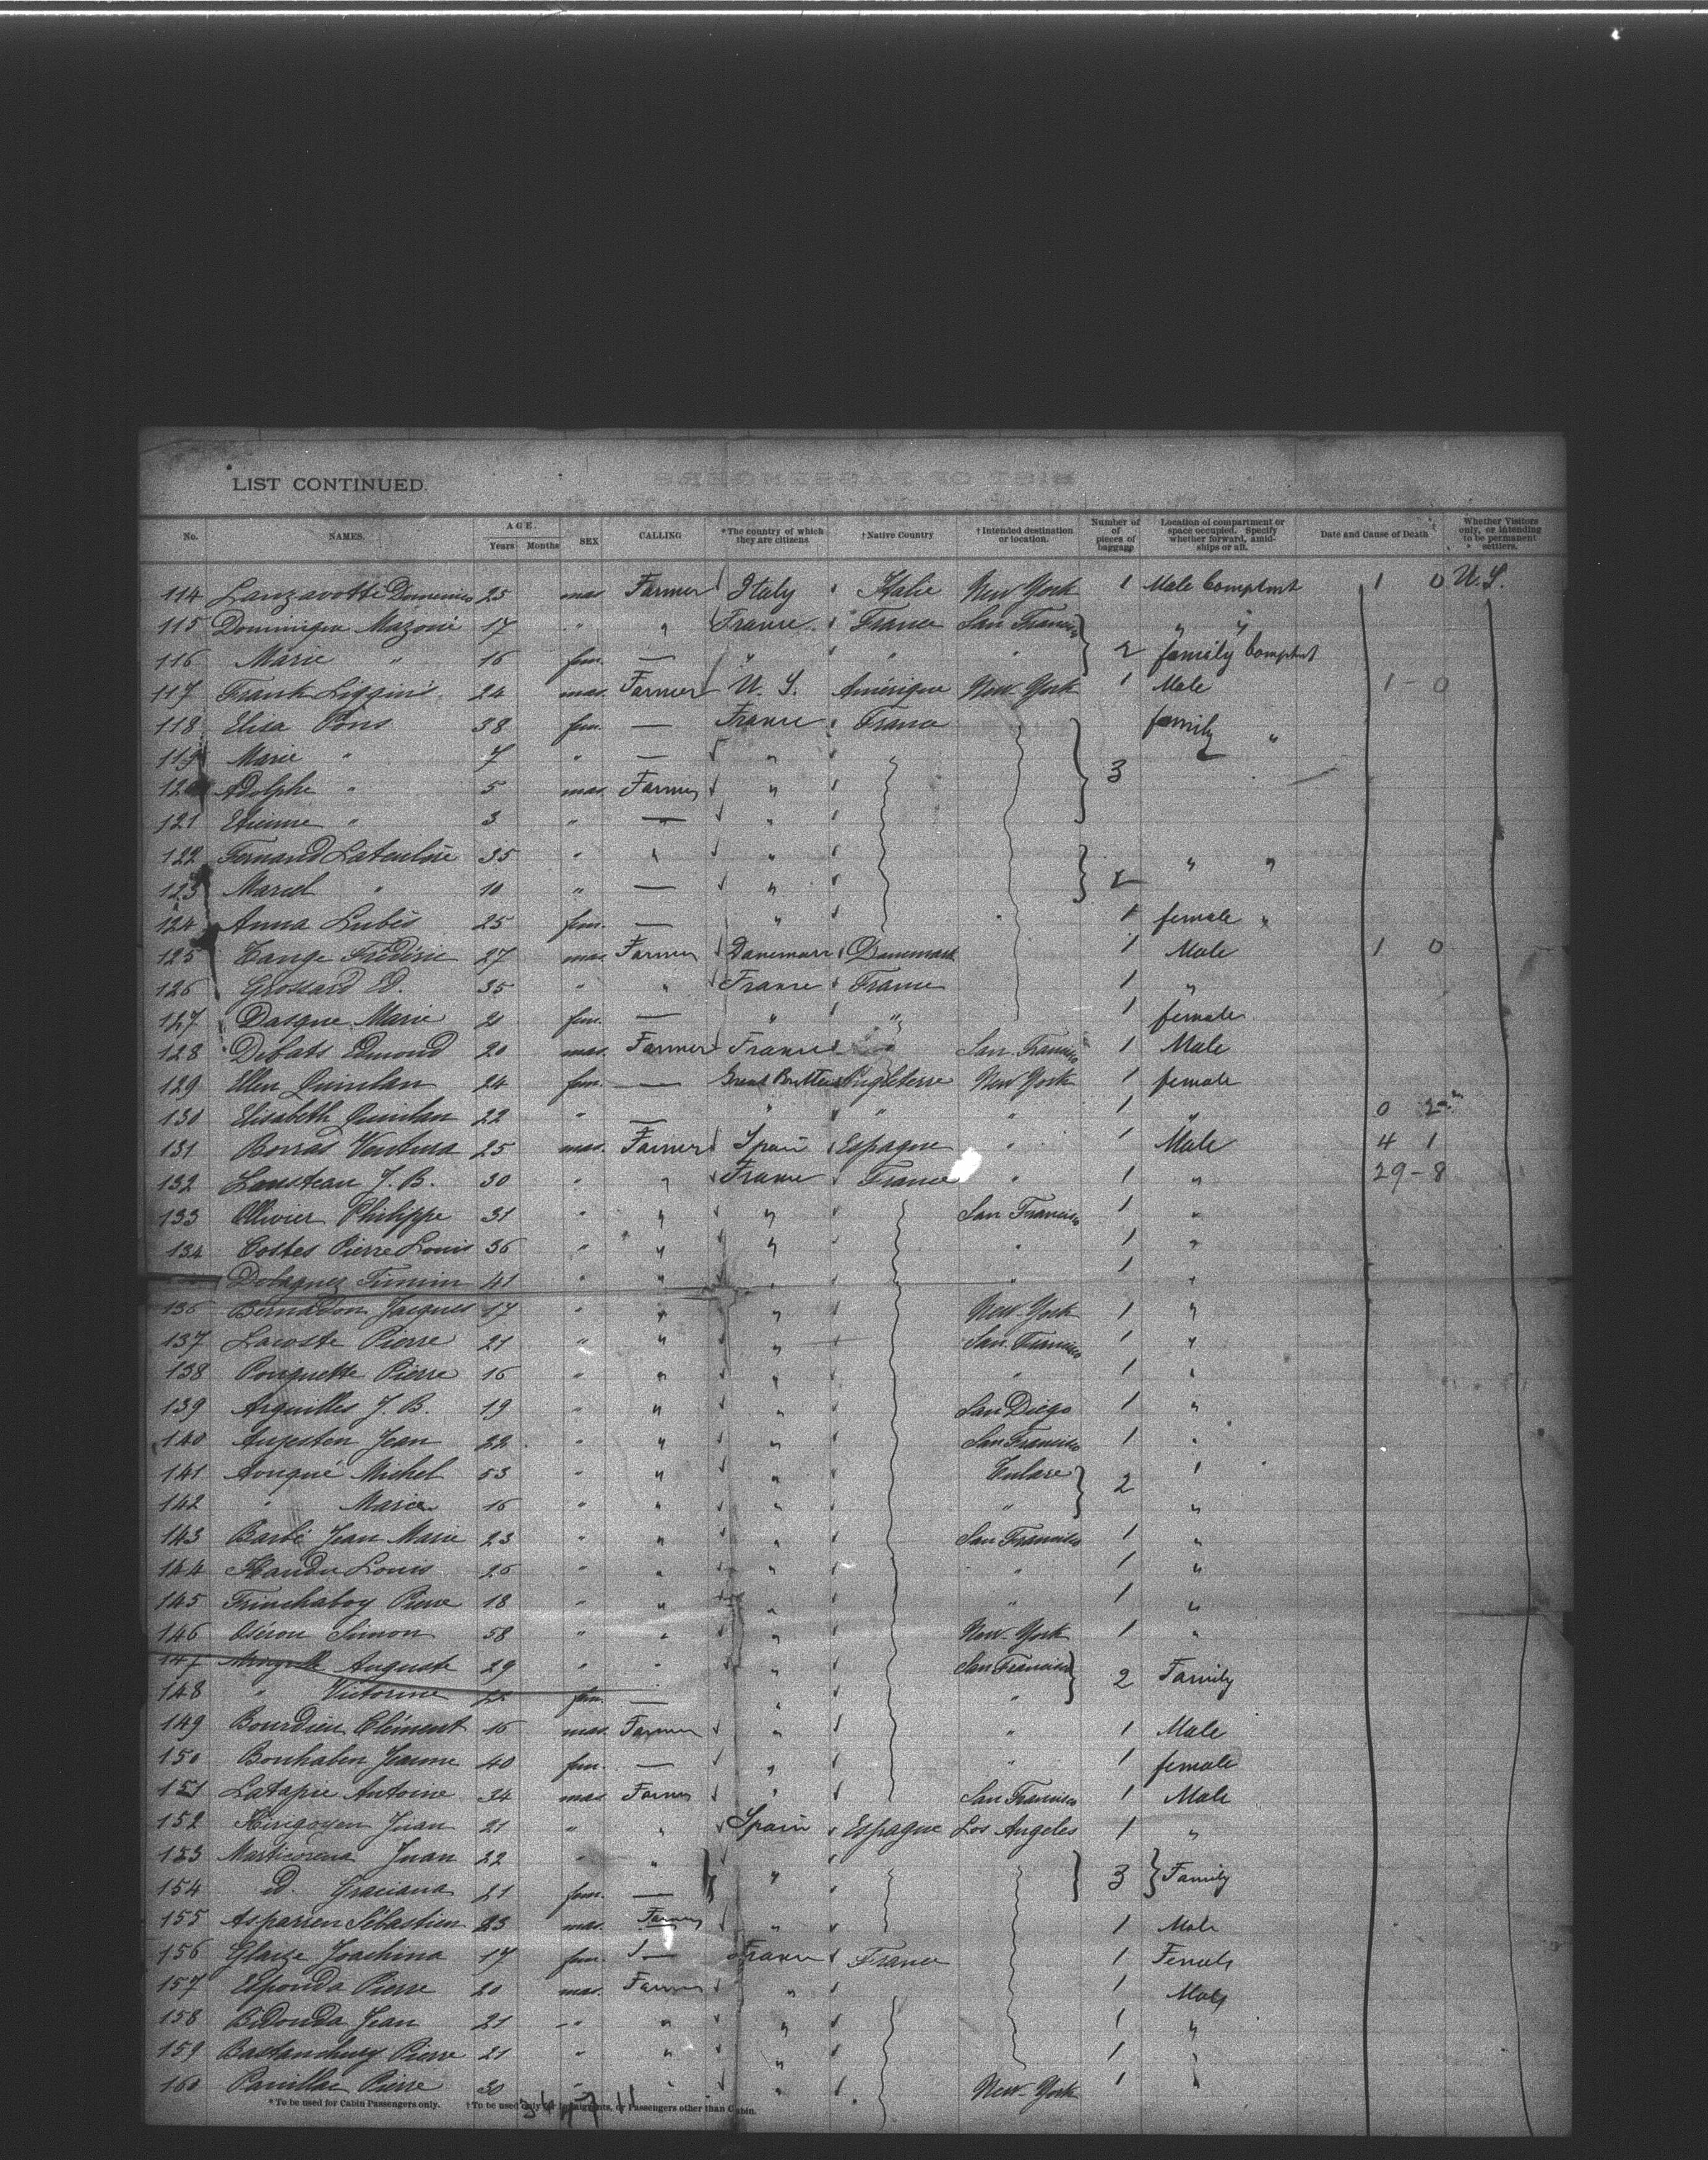 LIST CONTINUED.
No. NAMES. AGE. Years Months SEX CALLING *The country of which they are citizens †Native Country †Intended destination or location. Number of pieces of baggage Location of compartment or space occupied. Specify whether forward, amidships or aft. Date and Cause of Death Whether Visitors only, or intending to be permanent settlers.
114 25 mas Farmer Italy Italie New York 1 Male Comptmt 1 0 U.S.
115 Dominique 17 " " France France San Francisco " "
116 Marie " 16 fem. — " " " 2 family Comptmt
117 Frank Liggins 24 mas. Farmer U. S. Amérique New York 1 Male 1 - 0
118 Elisa Pons 38 fem. — France France family "
119 Marie " 7 " — " 3
120 Adolphe " 5 mas. Farmer "
121 Etienne " 3 " — "
122 Fernand 35 " " " " "
123 Marcel " 10 " — " 2
124 Anna Lubés 25 fem. — " " 1 female "
125 Tange Frédéric 27 mas Farmer Danemark Danemark 1 Male 1 0
126 Grossard Ed. 35 " " France France 1 "
127 Dasque Marie 21 fem. — " " 1 female
128 Debats Edmond 20 mas. Farmer France " San Francisco 1 Male
129 Ellen Quinlan 24 fem. — Great Angleterre New York 1 female
130 Elisabeth Quinlan 22 " — " " " 1 " 0
131 Borras Ventura 25 mas. Farmer Spain Espagne " 1 Male 4 1
132 Lousteau J. B. 30 " " France France " 1 " 29 - 8
133 Ollivier Philippe 31 " " " San Francisco 1 "
134 Costes Pierre Louis 36 " " " " 1 "
Firmin 41 " " " " 1 "
136 Bernadon Jacques 17 " " " New York 1 "
137 Lacoste Pierre 21 " " " San Francisco 1 "
138 Pouquette Pierre 16 " " " " 1 "
139 Arguilles J. B. 19 " " " San Diego 1 "
140 Jean 22 " " " San Francisco 1 "
141 Michel 53 " " " Tulare "
142 " Marie 16 " " " " 2 "
143 Barbé Jean Marie 23 " " " San Francisco 1 "
144 Louis 26 " " " " 1 "
145 Pierre 18 " " " " 1 "
146 Simon 58 " " " New York 1 "
147 Auguste 29 " " " San Francisco
148 " Victorine fem. — " " 2 Family
149 Bourdieu Clément 16 mas. Farmer " " 1 Male
150 Jeanne 40 fem. — " " 1 female
151 Latapie Antoine 34 mas Farmer " San Francisco 1 Male
152 Juan 21 " " Spain Espagne Los Angeles 1 "
153 Marticorena Juan 22 " " "
154 id. Graciana 21 fem. — 3 Family
155 Asparren Sébastien 23 mas. Farmer " 1 Male
156 Glaize Joachina 17 fem. — France France 1 Female
157 Esponda Pierre 20 mas. Farmer " 1 Male
158 Bidonda Jean 21 " " " 1 "
159 Bastanchury Pierre 21 " " " 1 "
160 Pierre 30 " " " New York 1 "
*To be used for Cabin Passengers only. †To be used only for Immigrants, or Passengers other than Cabin.